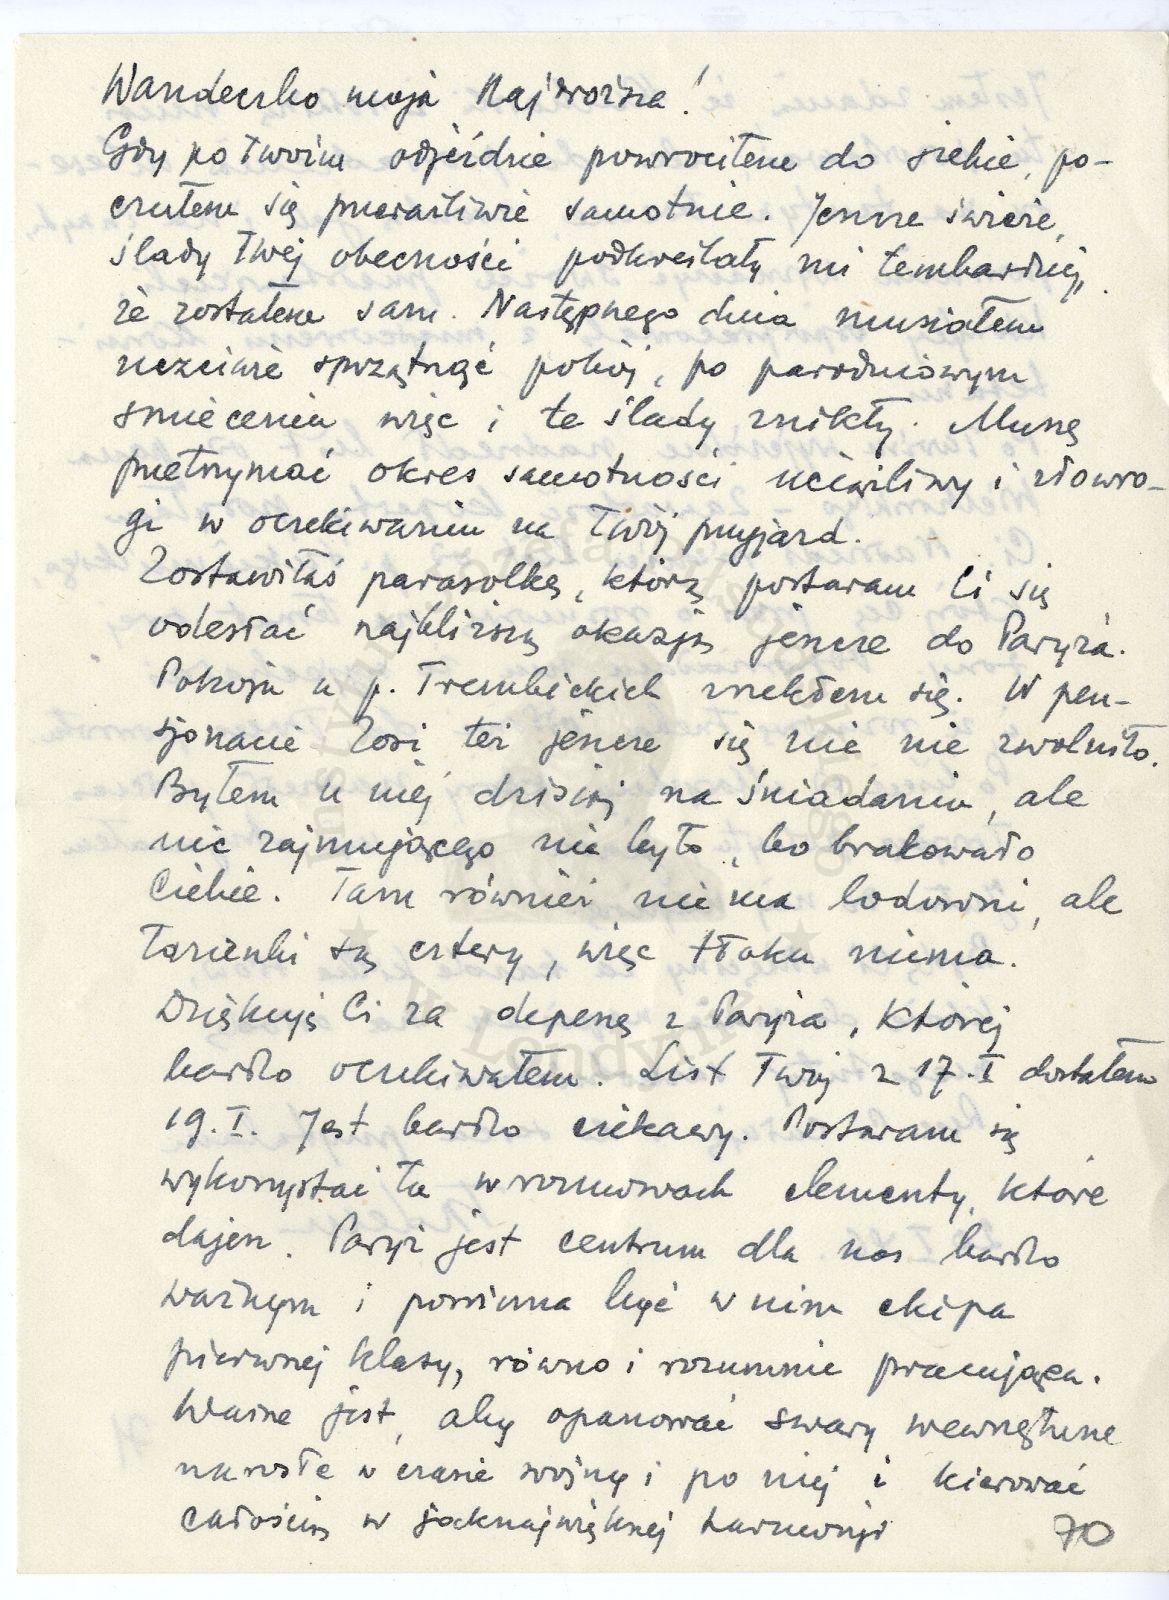 Wandeczko moja Najdroższa!
Gdy po Twoim odjeździe powróciłem do siebie, po-
czułem się przeraźliwie samotnie. Jeszcze świeże,
ślady Twej obecności podkreślały mi tembardziej,
że zostałem sam. Następnego dnia musiałem
uczciwie sprzątnąć pokój, po parodniowym
śmieceniu więc i te ślady znikły. Muszę
przetrzymać okres samotności uciążliwy i złowro-
gi w oczekiwaniu na Twój przyjazd.
Zostawiłaś parasolkę, którą postaram Ci się
odesłać najbliższą okazją jeszcze do Paryża.
Pokoju u p. Trembickich zrzekłem się. W pen-
sjonacie Zosi też jeszcze się nic nie zwolniło.
Byłem u niej dzisiaj na śniadaniu, ale
nic zajmującego nie było, bo brakowało
Ciebie. Tam również nie ma lodowni, ale
łazienki są cztery, więc tłoku niema.
Dziękuję Ci za depeszę z Paryża, której
bardzo oczekiwałem. List Twój z 17.I dostałem
19.I. Jest bardzo ciekawy. Postaram się
wykorzystać tu w rozmowach elementy, które
dajesz. Paryż jest centrum dla nas bardzo
ważnym i powinna być w nim ekipa
pierwszej klasy, równo i rozumnie pracująca.
Ważne jest, aby opanować swary wewnętrzne
narosłe w czasie wojny i po niej i kierować
całością w jaknajwiększej harmonji
70
Józefa
w Londynie